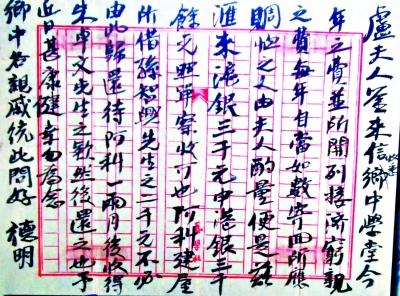 盧夫人鑒來信收悉鄉中學堂今
年之費並所開列接濟窮親
之費每年自當如數寄回所應
賙恤之人由夫人酌量便是茲
滙來滬銀三千元申港銀三千
餘元照單察收可也阿科建屋
所借孫智興先生之二千元不必
由此歸還待阿科一兩月後收得
朱卓文先生之款然後還之也予
近日甚康健幸勿為念
鄉中各親戚統此問好 德明